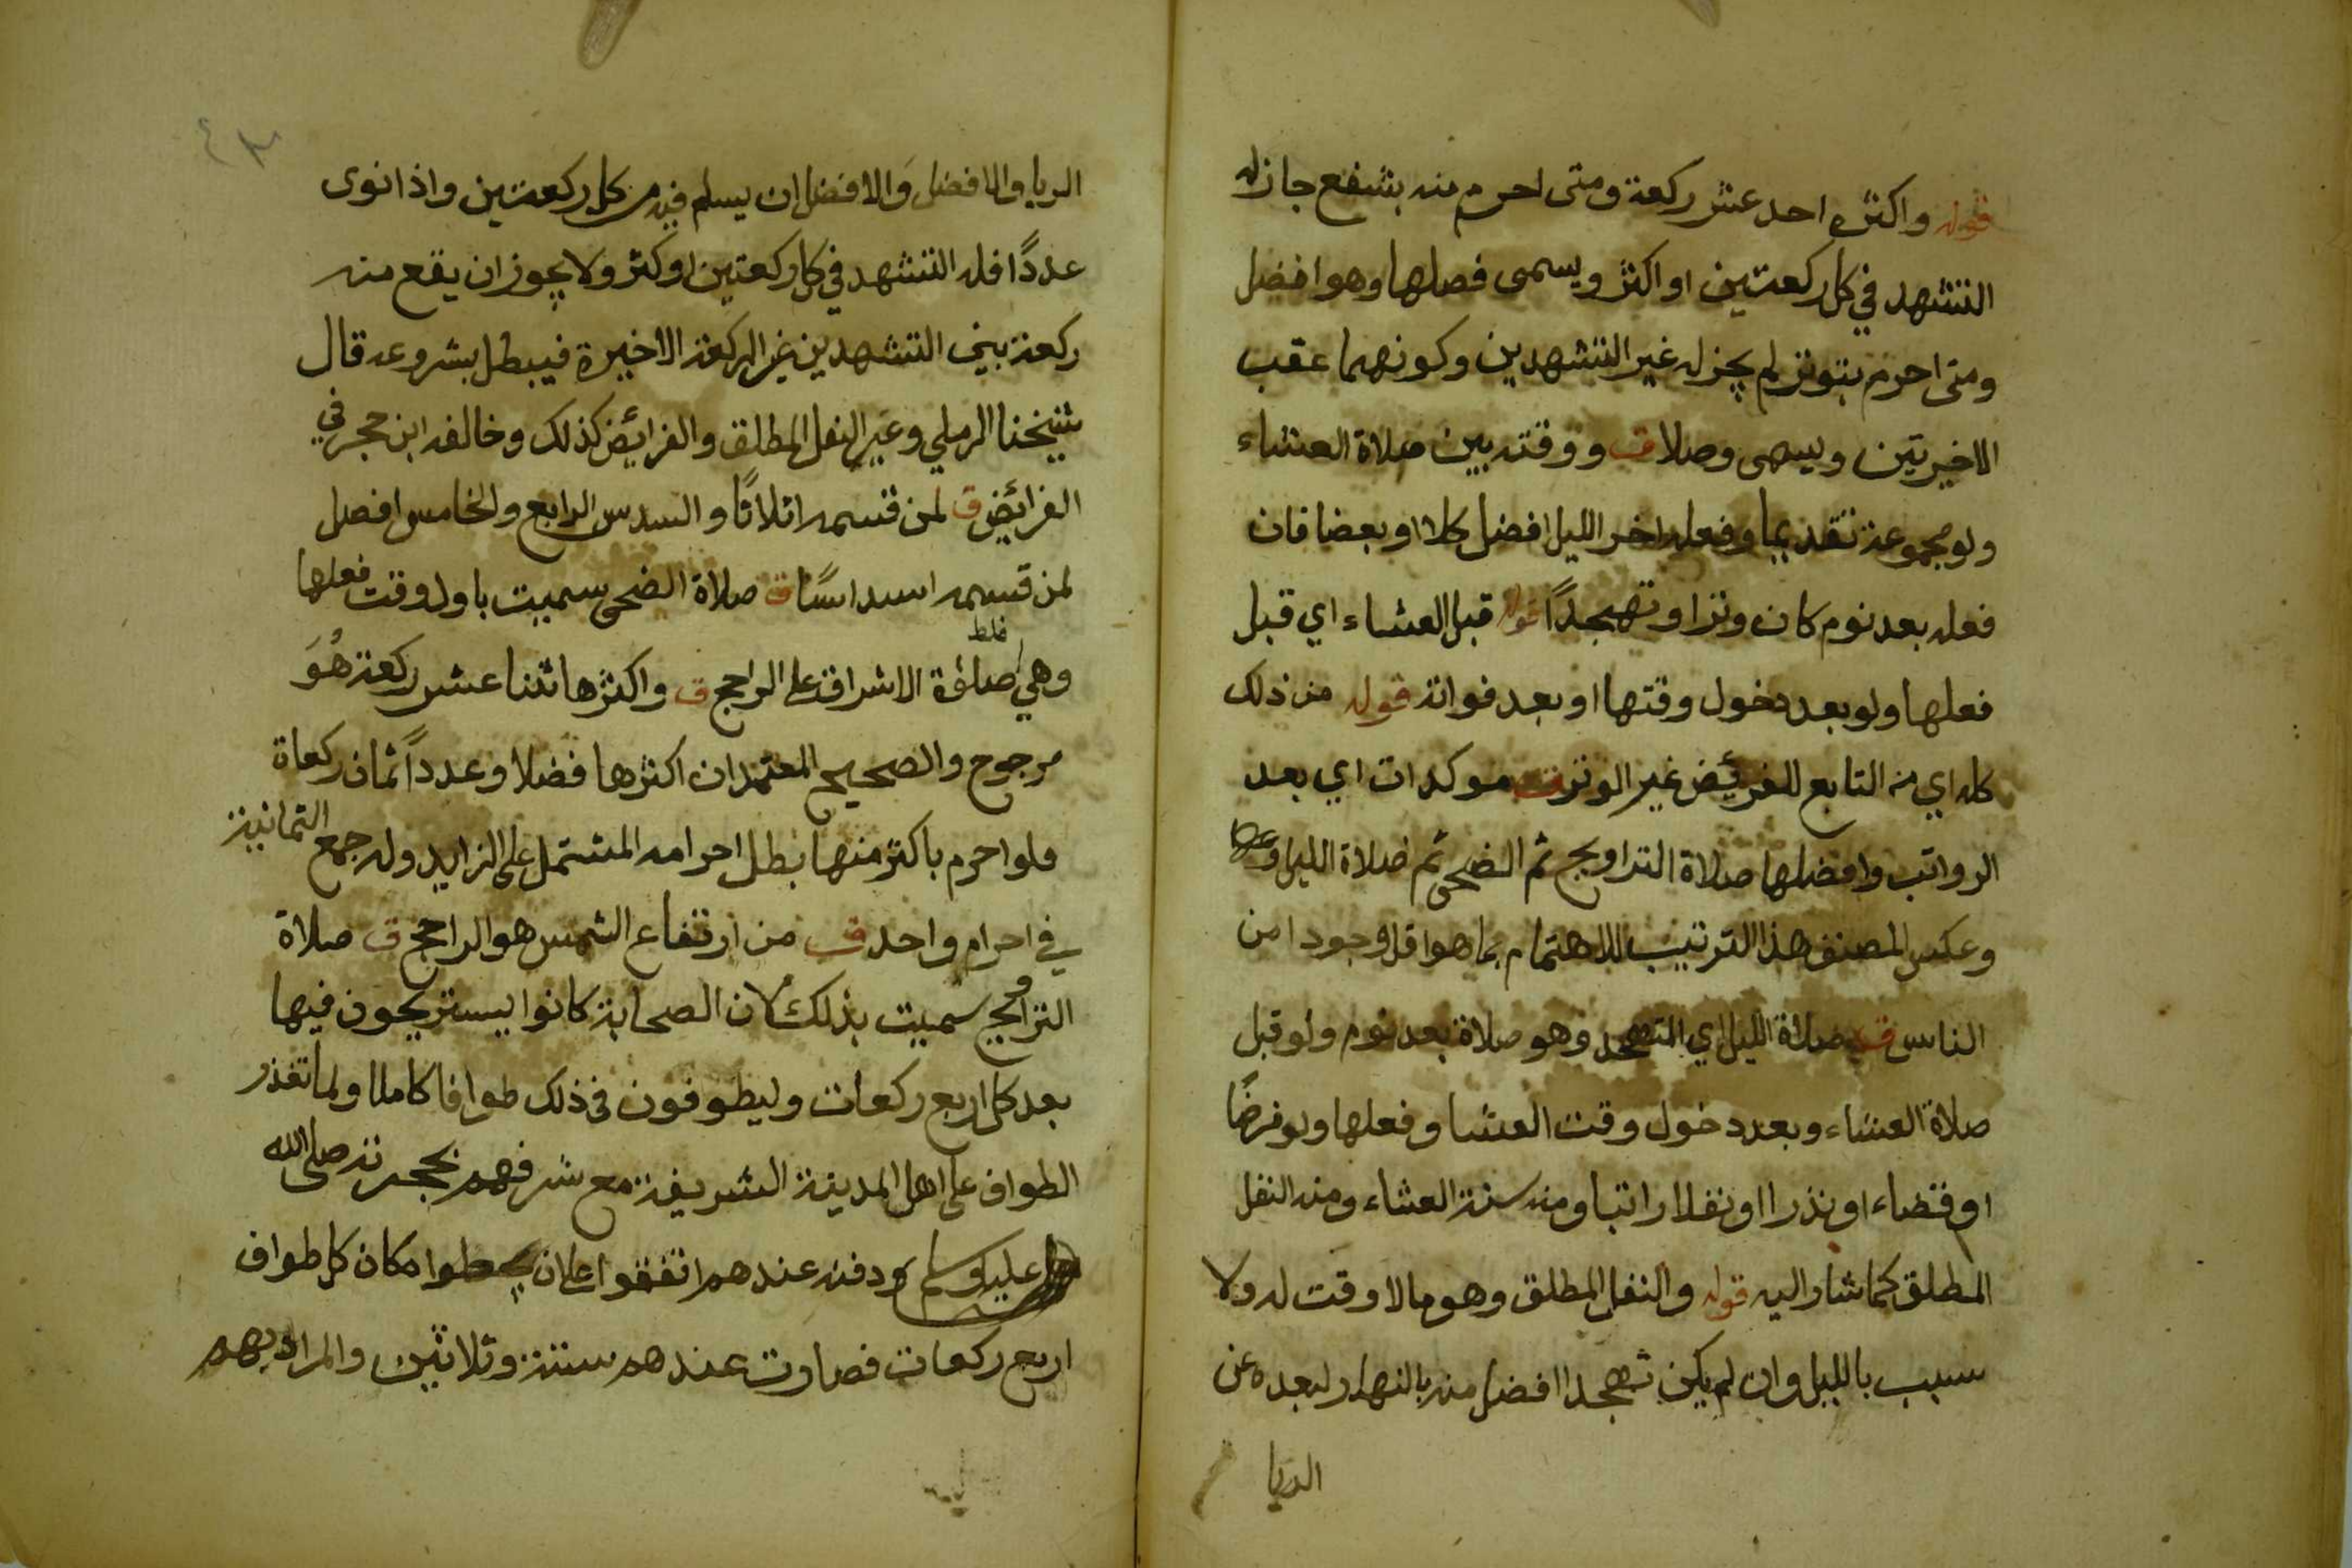 قوله واكثره احد عشر ركعة ومتى احرم منه بشفع جاز له
التشهد في كل ركعتين او اكثر ويسمى فصلها وهو افضل
ومتى احرم بتوتر لم يجز له غير التشهدين وكونهما عقب
الاخيرتين ويسمى وصلا ق ووقته بين صلاة العشاء
ولو مجموعة تقديما وفعله اخر الليل افضل كلا او بعضا فان
فعله بعد نوم كان وترا وتهجدًا قوله قبل العشاء اي قبل
فعلها ولو بعد دخول وقتها او بعد فواته قوله من ذلك
كله اي من التابع للفرئض غير الوتر ق موكدات اي بعد
الرواتب وافضلها صلاة التراويح ثم الضحى ثم صلاة الليل
وعكس المصنف هذا الترتيب للاهتمام بما هو اقل وجودا من
الناس ق صلاة الليل اي التهجد وهو صلاة بعد نوم ولو قبل
صلاة العشاء وبعد دخول وقت العشا وفعلها ولو فرضًا
او قضاء او نذرا او نفلا راتبا ومنه سنة العشاء ومنه النفل
المطلق كما شار اليه قوله والنفل المطلق وهو مالا وقت له ولا
سبب بالليل وان لم يكن تهجدا افضل منه بالنهار لبعده عن
الريا
٤٣
الريا والافضل وَالافضل ان يسلم فيه من كل ركعتين واذا نوى
عددًا فله التشهد في كل ركعتين او كثر ولا يجوز ان يقع منه
ركعة بين التشهدين غير الركعة الاخيرة فيبطل بشروعه قال
شيخنا الرملي وغير النفل المطلق والفرايض كذلك وخالفه ابن حجر في
الفرائض ق لمن قسمه اثلاثًا والسدس الرابع والخامس افضل
لمن قسمه اسداسًا ق صلاة الضحى سميت باول وقت فعلها
غلط
وهي صلاة الاشراق على الراجح ق واكثرها اثنا عشر ركعة هُوَ
مرجوح والصحيح المعتمد ان اكثرها فضلا وعددًا ثمان ركعاة
فلو احرم باكثر منها بطل احرامه المشتمل على الزايد وله جمع الثمانية
في احرام واحد ق من ارتفاع الشمس هو الراجح ق صلاة
التراويح سميت بذلك لان الصحابة كانوا يستريحون فيها
بعد كل اربع ركعات وليطوفون في ذلك طوافا كاملا ولما تعذر
الطواف على اهل المدينة الشريفة مع شرفهم بهجرته صلى الله
عليه وسلم ودفنه عندهم اتفقوا على ان يجعلوا مكان كل طواف
اربع ركعات فصارت عندهم ستة وثلاثين والمراد بهم